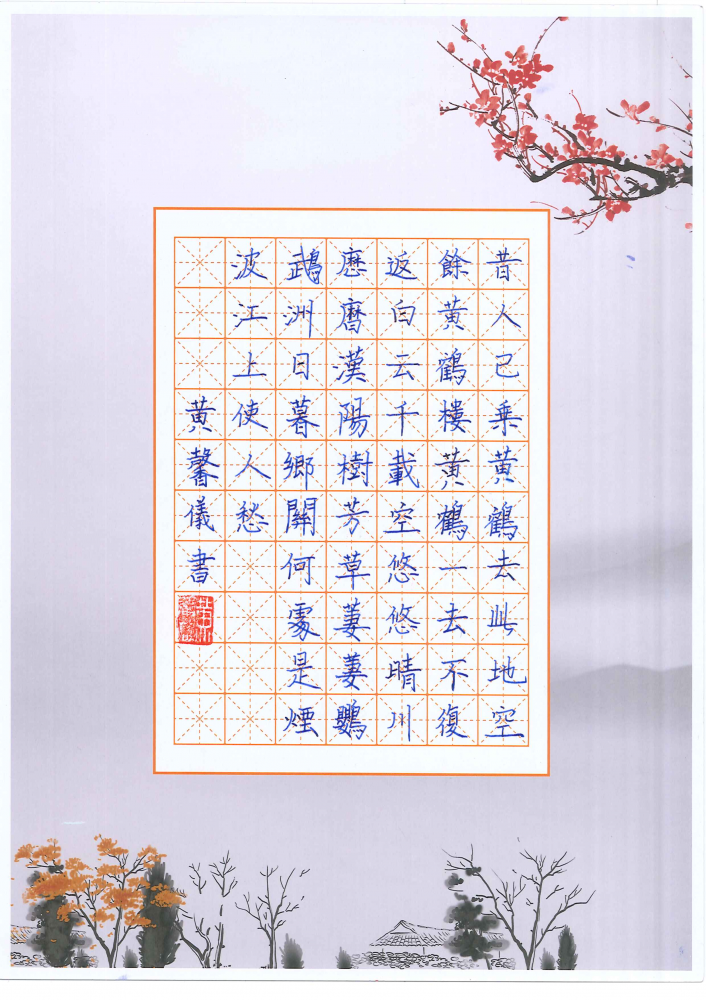 昔人已乘黃鶴去此地空
餘黃鶴樓黃鶴一去不復
返白云千載空悠悠晴川
歷曆漢陽樹芳草萋萋鸚
鵡洲日暮鄉關何處是煙
波江上使人愁
黃馨儀書